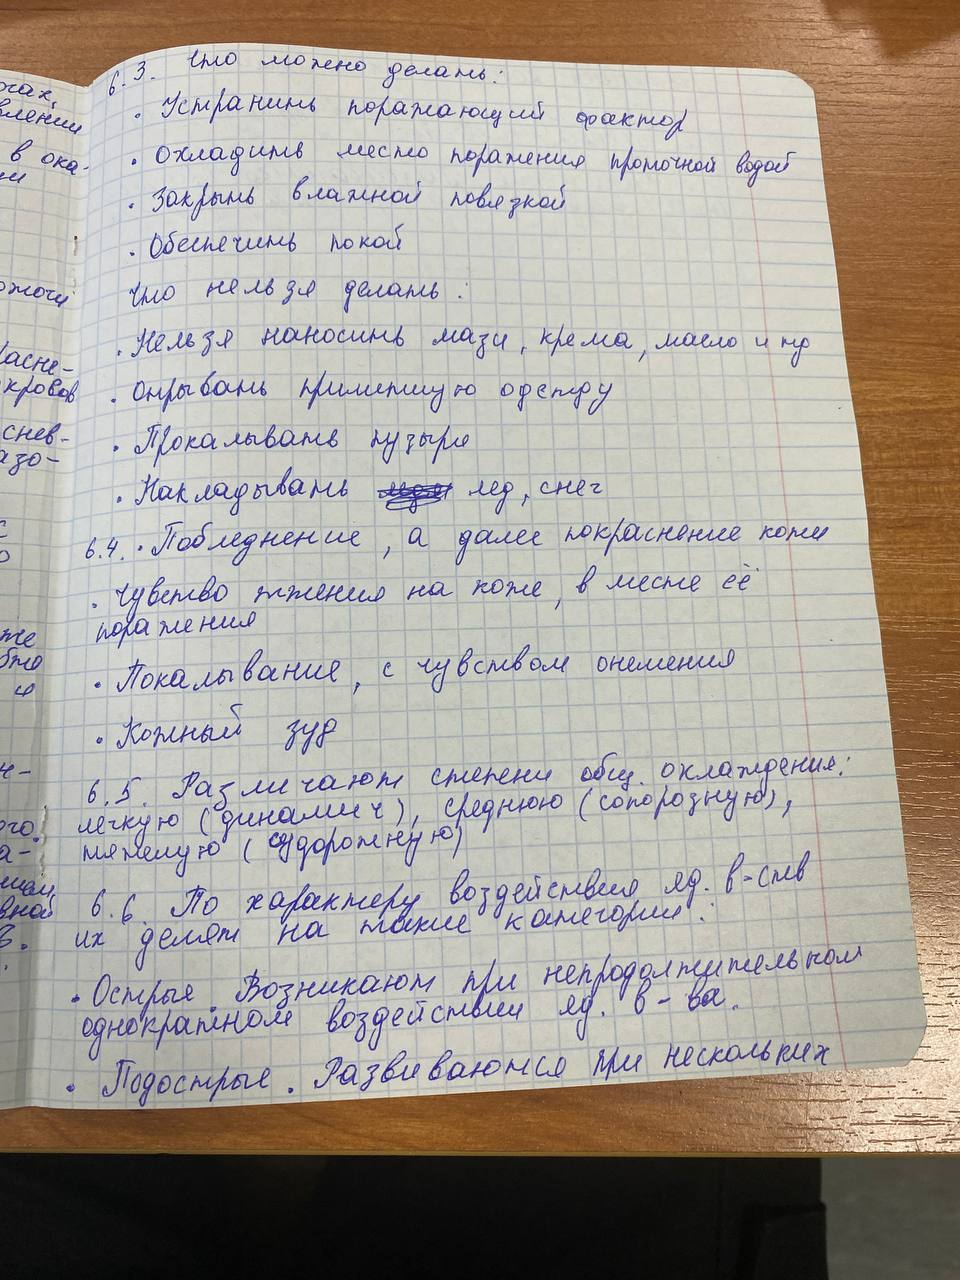 огах,
влении
в ока-
ии
омочи
расне-
кровов
снев-
азо-
с
о
же
бже
и
н-
ого.
а-
иам,
вной
в.
6.3. Что можно делать:
· Устранить поражающий фактор
· Охладить место поражения проточной водой
· Закрыть влажной повязкой
· Обеспечить покой
Что нельзя делать:
· Нельзя наносить мази, крема, масло и пр
· Отрывать прилипшую одежду
· Прокалывать пузыри
· Накладывать лед, снег
6.4. · Побледнение, а далее покраснение кожи
· Чувство жжения на коже, в месте её
поражения
· Покалывание, с чувством онемения
· Кожный зуд
6.5. Различают степени общ. охлаждения:
легкую (динамич), среднюю (сопорозную),
тяжелую (судорожную)
6.6. По характеру воздействия яд. в-ств
их делят на такие категории:
· Острые. Возникают при непродолжительном
однократном воздействии яд. в-ва.
· Подострые. Развиваются при нескольких